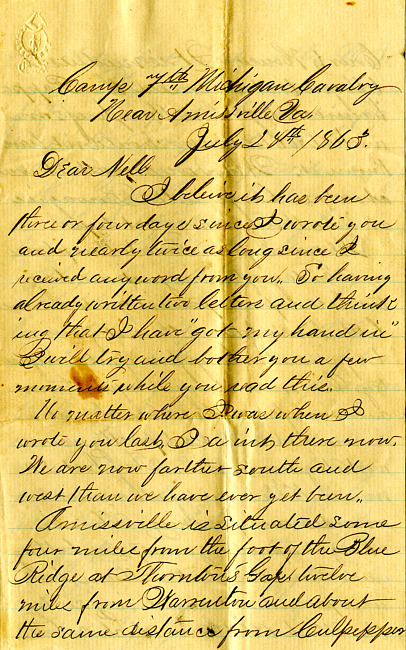 Camp 7th Michigan Cavalry
Near Amissville Va
July 24th 1863.
Dear Nell
I believe it has been
three or four days since I wrote you
and nearly twice as long since I
received any word from you. So having
already written two letters and think
ing that I have "got my hand in"
I will try and bother you a few
moments while you read this.
No matter where I was when I
wrote you last, I aint there now.
We are now farther south and
west than we have ever yet been.
Amissville is situated some
four miles from the foot of the Blue
Ridge at Thornton's Gap twelve
miles from Warrenton and about
the same distance from Culpepper